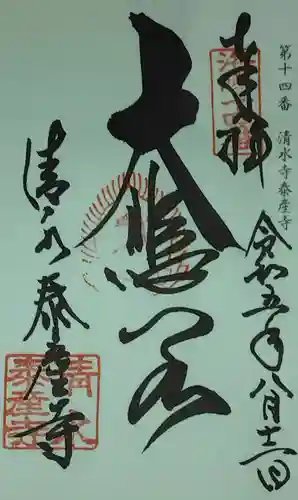 第十四番　清水寺泰産寺
奉拝
令和五年八月十二日
大悲閣
清水泰産寺